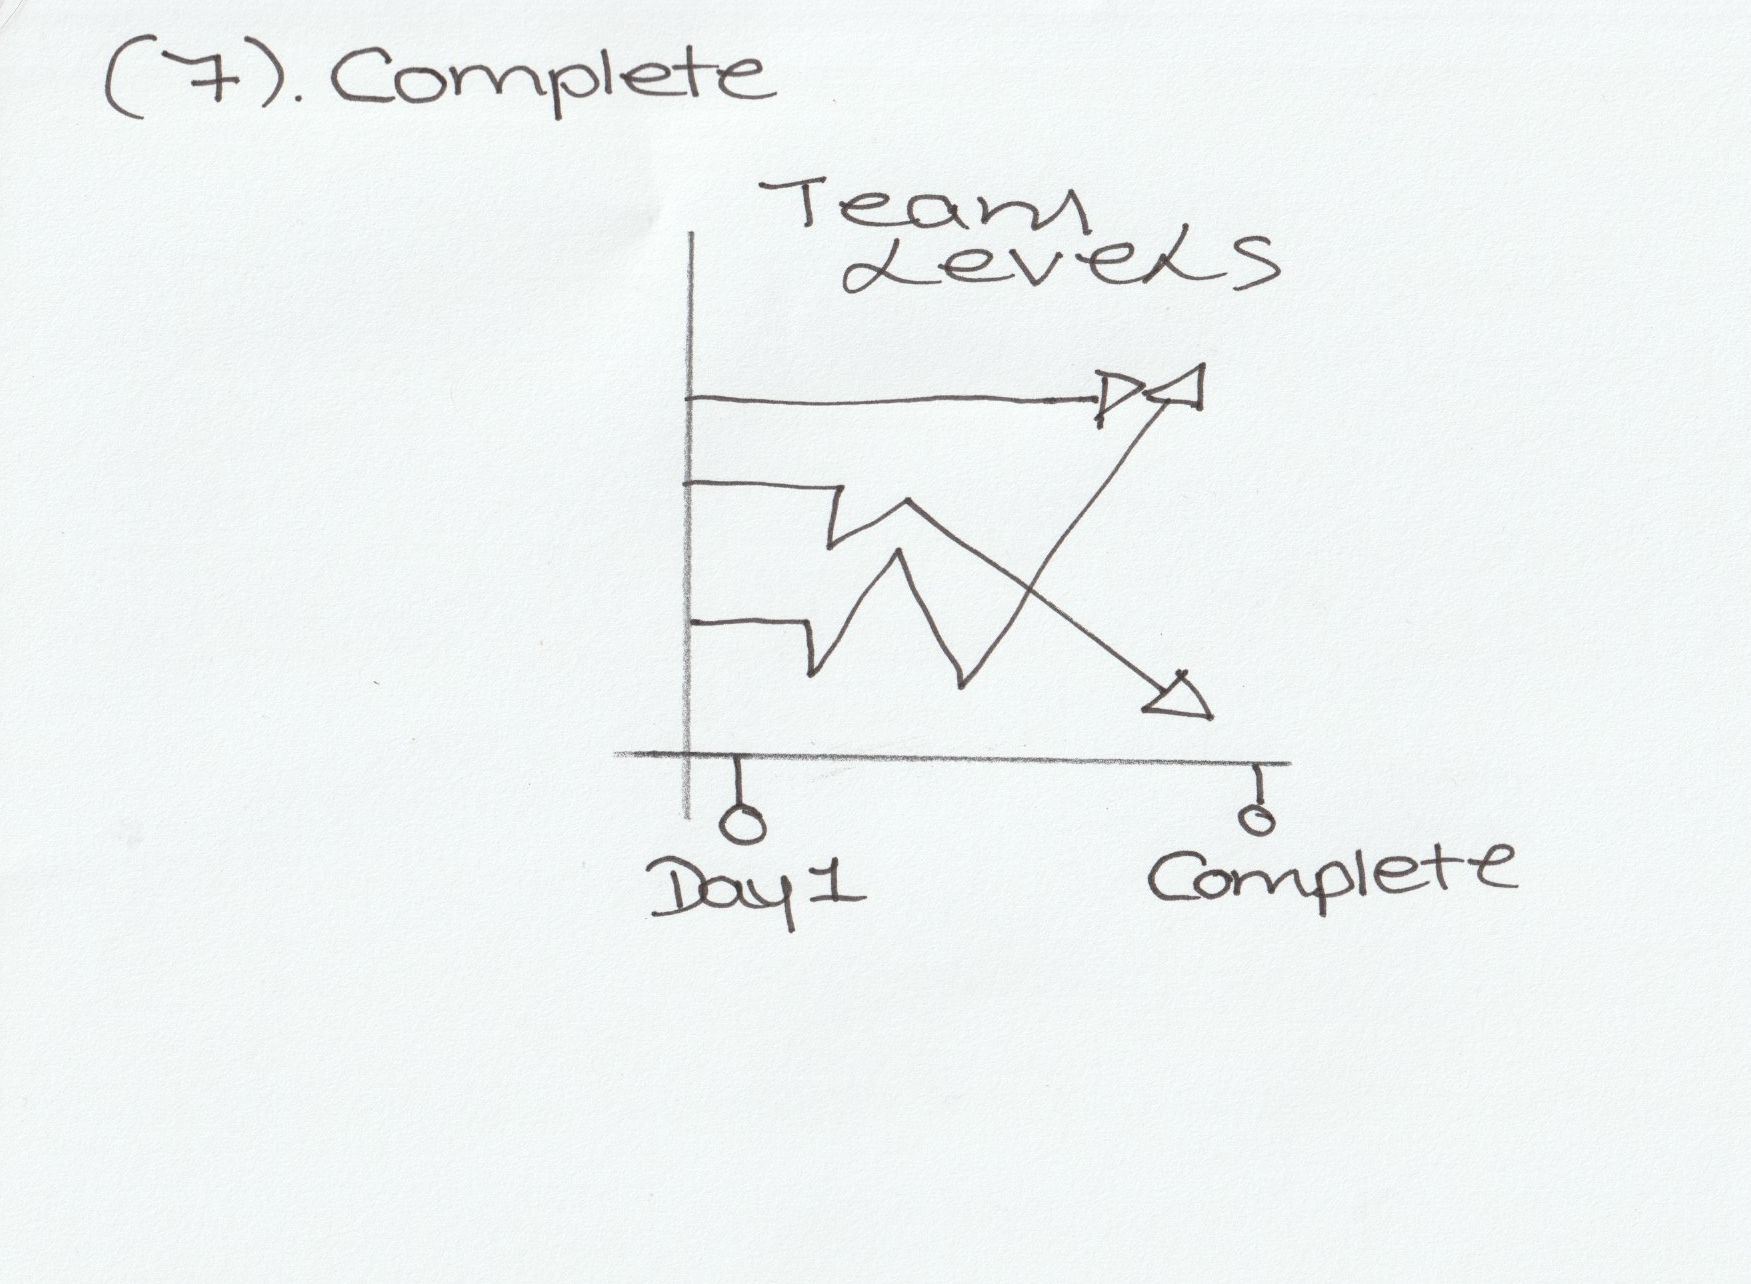 (7). Complete
Team
Levels
Day 1
Complete